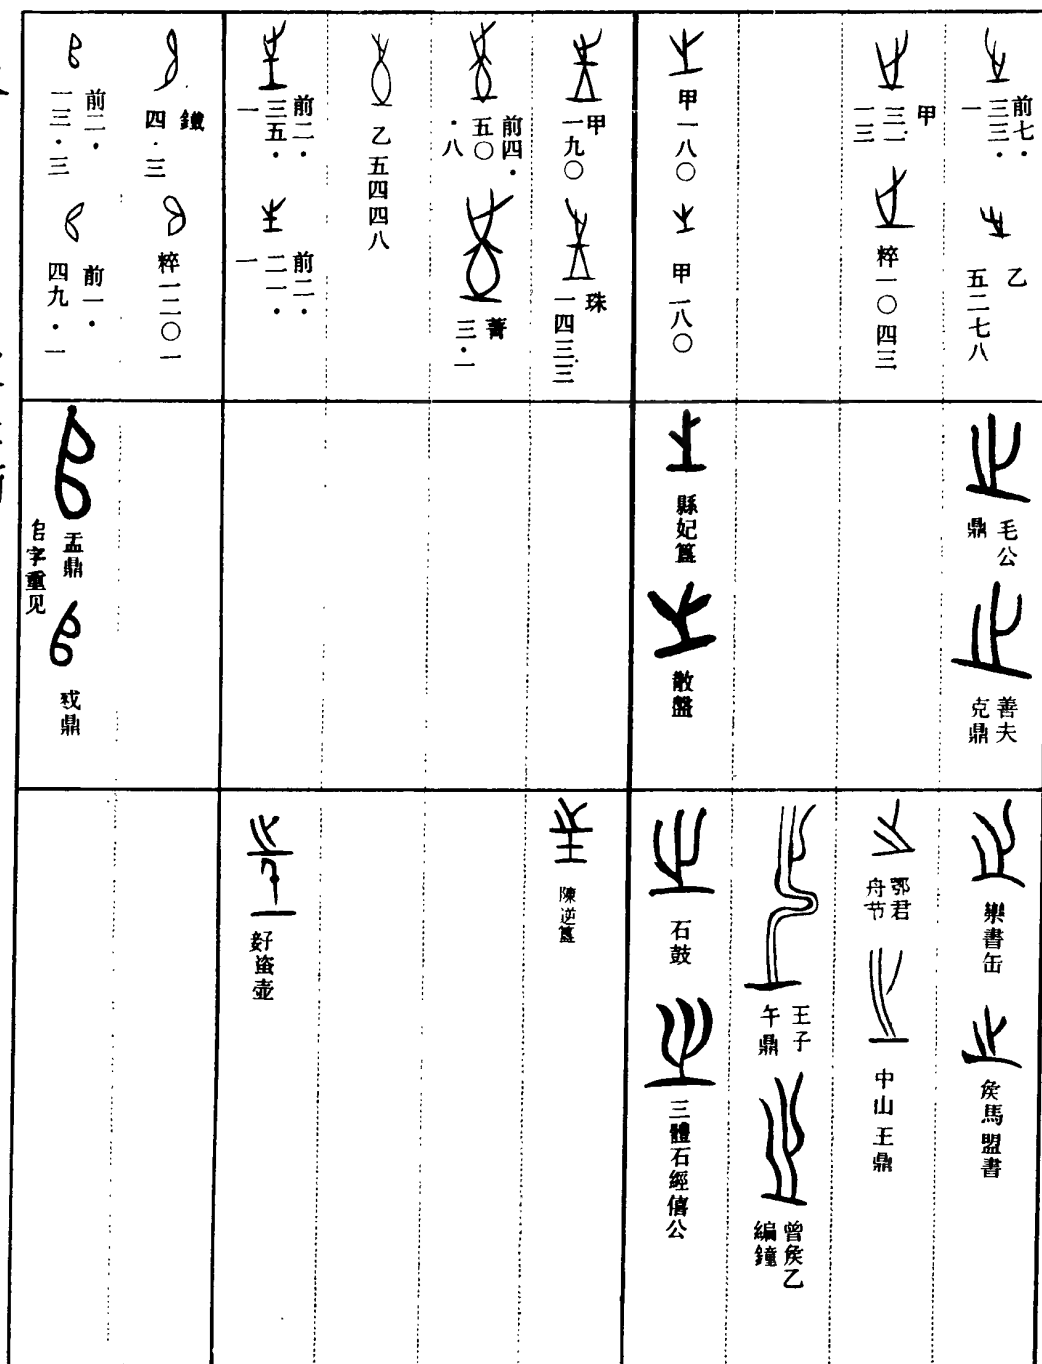 前七・三三・一
乙五二七八
甲三一一三
粹一〇四三
甲一八〇
甲一八〇
甲一九〇
珠一四三三
前四・五〇・八
菁三・一
乙五四四八
前二・三五・一
前二・二一・一
鐵四・三
粹一二〇一
前二・一三・三
前一・四九・一
毛公鼎
善夫克鼎
縣妃簋
散盤
盂鼎
㠯字重见
戜鼎
欒書缶
矦馬盟書
鄂君舟节
中山王鼎
王子午鼎
曾矦乙編鐘
石鼓
三體石經僖公
陳逆簋
䊷盗壶